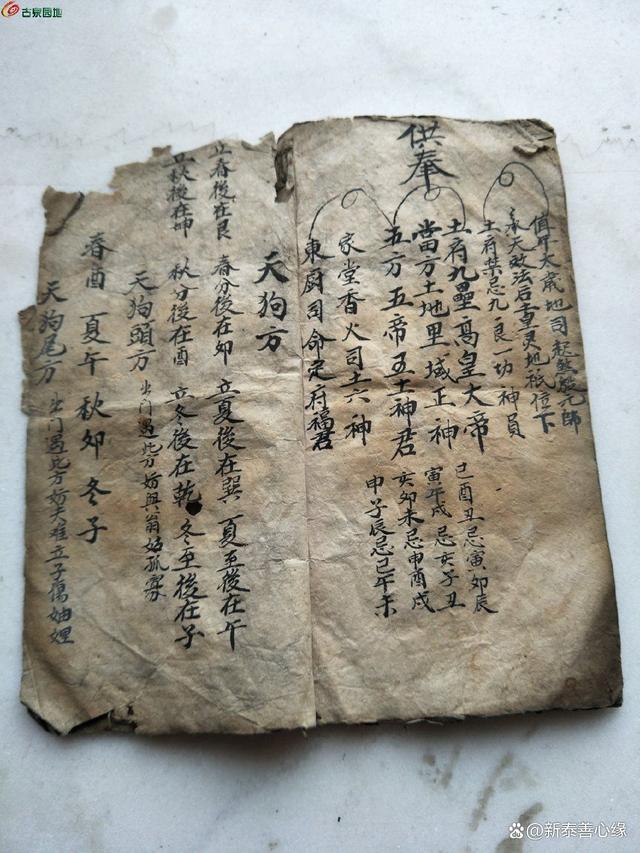 古泉园地
供奉
值年太歲地司起煞殷元帥
奉天敕法后土重灵地祇位下
土府禁忌九良一切神員
土府九壘高皇大帝
當方土地里域正神
五方五帝五土神君
家堂香火司土六神
東厨司命定府福君
巳酉丑忌寅卯辰
寅午戌忌亥子丑
亥卯未忌申酉戌
申子辰忌巳午未
天狗方
立春後在艮 春分後在卯 立夏後在巽 夏至後在午
立秋後在坤 秋分後在酉 立冬後在乾 冬至後在子
天狗頭方 出门遇些方妨與翁姑孤寡
春酉 夏午 秋卯 冬子
天狗尾方 出门遇些方妨夫难立子偶妯娌
@新泰善心缘